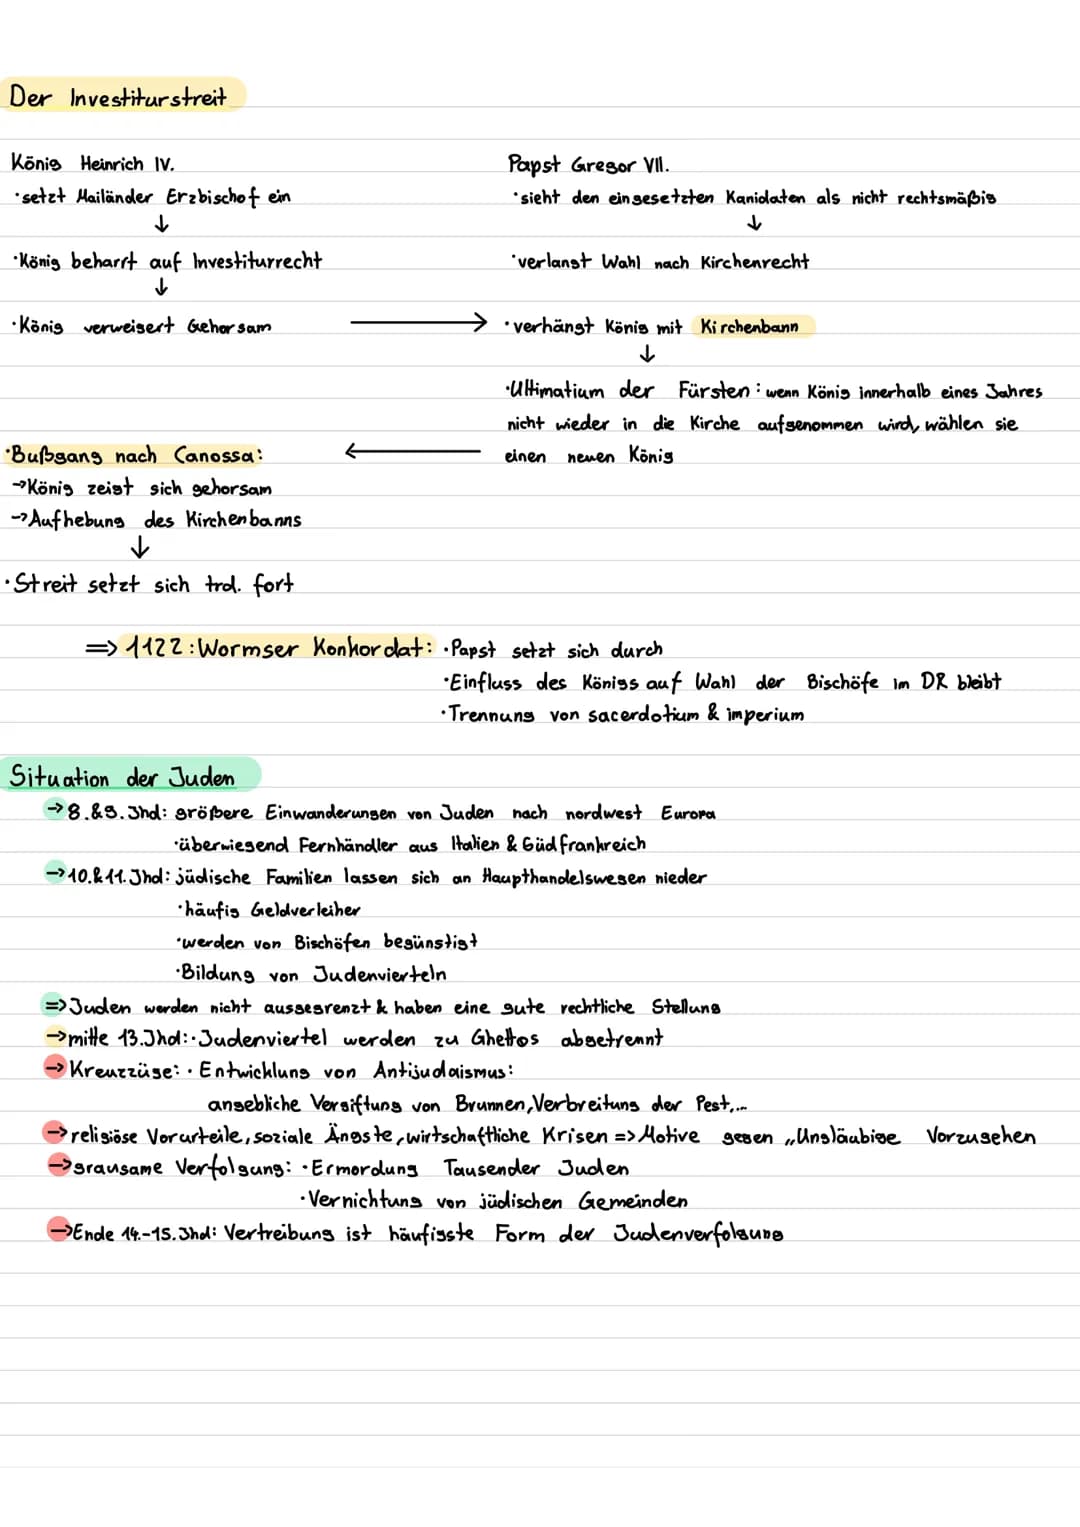 Der Investiturstreit
König Heinrich IV.
Papst Gregor VII.
·setzt Mailänder Erzbischof ein
·sieht den eingesetzten Kanidaten als nicht rechtsmäßig
↓
↓
·König beharrt auf Investiturrecht
·verlangt Wahl nach Kirchenrecht
↓
·König verweigert Gehorsam → ·verhängt König mit Kirchenbann
↓
·Ultimatium der Fürsten: wenn König innerhalb eines Jahres
nicht wieder in die Kirche aufgenommen wird, wählen sie
·Bußgang nach Canossa: ← einen neuen König
→König zeigt sich gehorsam
→Aufhebung des Kirchenbanns
↓
·Streit setzt sich trd. fort
=> 1122: Wormser Konkordat: ·Papst setzt sich durch
·Einfluss des Königs auf Wahl der Bischöfe im DR bleibt
·Trennung von sacerdotium & imperium
Situation der Juden
→8.&9. Jhd: größere Einwanderungen von Juden nach nordwest Europa
·überwiegend Fernhändler aus Italien & Südfrankreich
→10.&11. Jhd: jüdische Familien lassen sich an Haupthandelswegen nieder
·häufig Geldverleiher
·werden von Bischöfen begünstigt
·Bildung von Judenvierteln
=>Juden werden nicht ausgegrenzt & haben eine gute rechtliche Stellung
→mitte 13. Jhd: ·Judenviertel werden zu Ghettos abgetrennt
→Kreuzzüge: ·Entwicklung von Antijudaismus:
angebliche Vergiftung von Brunnen, Verbreitung der Pest,...
→religiöse Vorurteile, soziale Ängste, wirtschaftliche Krisen => Motive gegen „Ungläubige Vorzugehen
→grausame Verfolgung: ·Ermordung Tausender Juden
·Vernichtung von jüdischen Gemeinden
→Ende 14.-15. Jhd: Vertreibung ist häufigste Form der Judenverfolgung